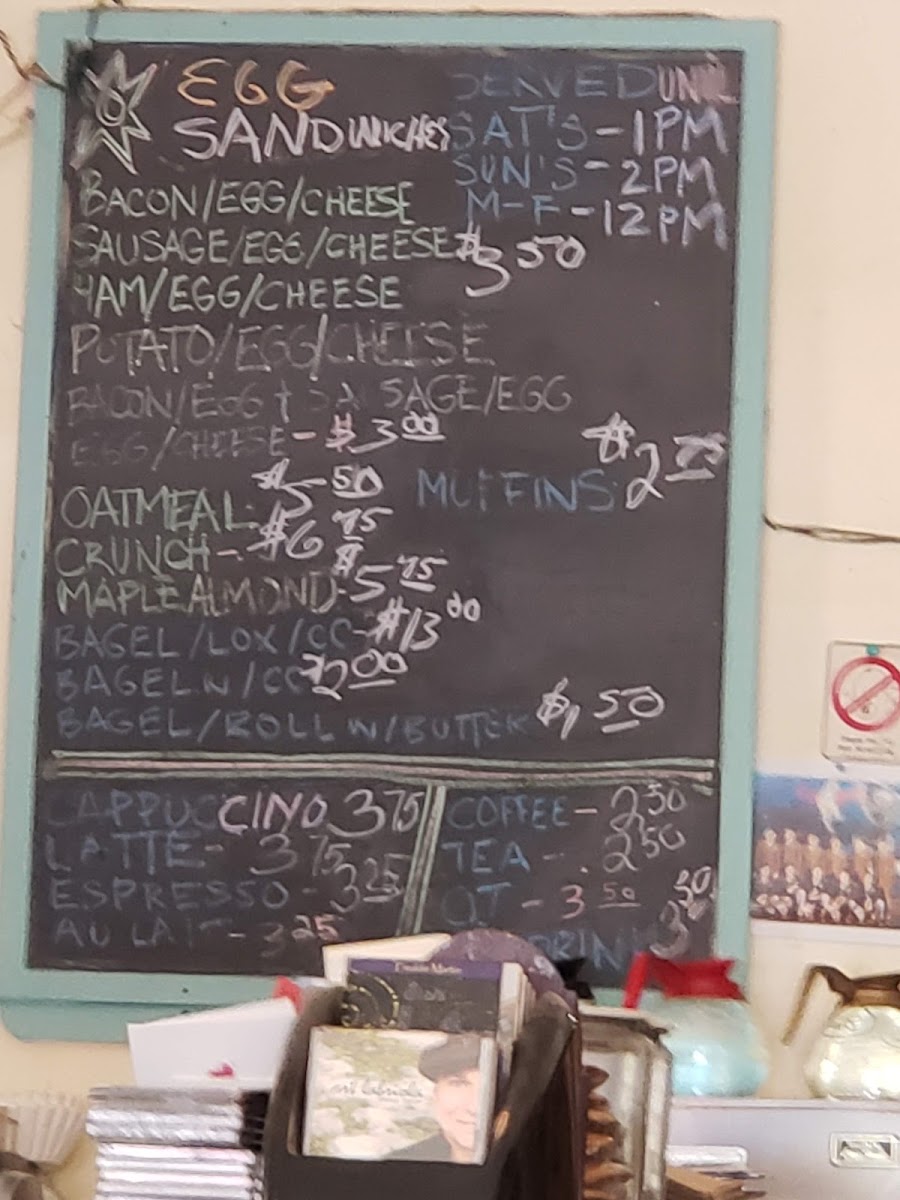 EGG SERVED UNTIL
SANDWICHES SAT'S - 1PM
SUN'S - 2PM
BACON/EGG/CHEESE M-F - 12PM
SAUSAGE/EGG/CHEESE $3 50
HAM/EGG/CHEESE
POTATO/EGG/CHEESE
BACON/EGG + SAUSAGE/EGG
EGG/CHEESE - $3 00
MUFFINS $2 75
OATMEAL - $5 50
CRUNCH - $6 75
MAPLE ALMOND - $5 75
BAGEL/LOX/CC - $13 00
BAGEL W/CC $2 00
BAGEL/ROLL W/BUTTER $1 50
CAPPUCCINO 3 75
LATTE - 3 75
ESPRESSO - 3 25
AU LAIT - 3 25
COFFEE - 2 50
TEA - 2 50
OJ - 3 50
DRINK 3 50